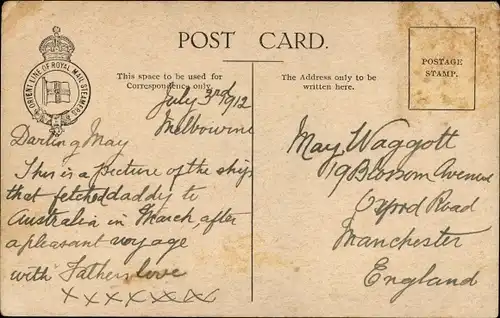 POST CARD.
ORIENT LINE OF ROYAL MAIL STEAMERS
This space to be used for
Correspondence only.
July 3rd 1912
Melbourne
Darling May
This is a picture of the ship
that fetched daddy to
Australia in March, after
a pleasant voyage
with Fathers love
x x x x x x x
The Address only to be
written here.
POSTAGE
STAMP.
May Waggott
19 Blossom Avenue
Oxford Road
Manchester
England